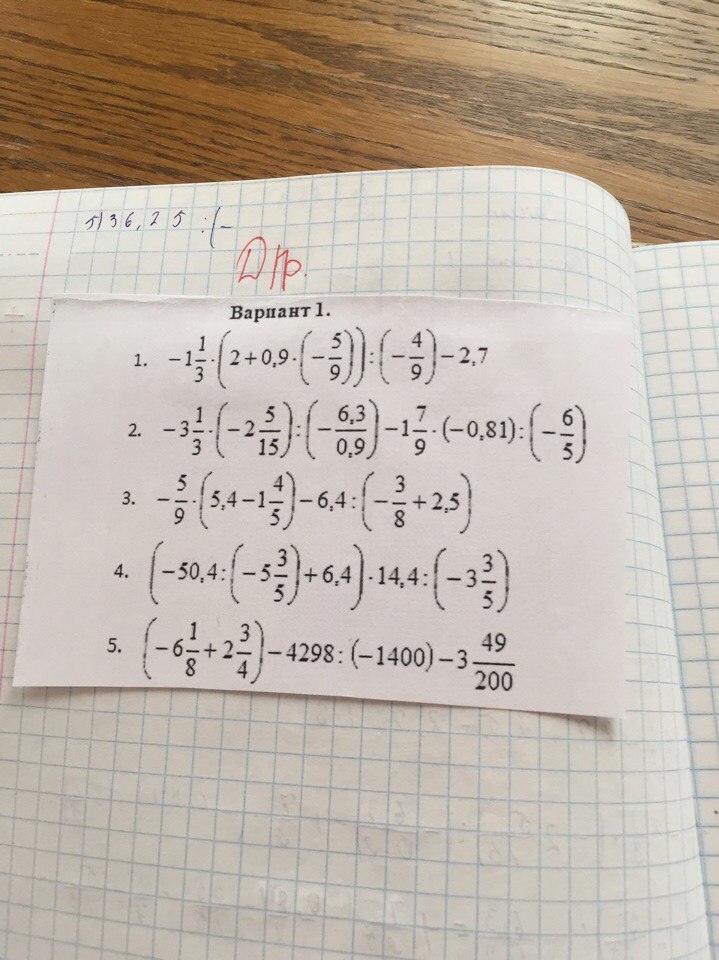 5) 36,25 :(–
Д/р.
Вариант 1.
1. −1 1/3 · (2 + 0,9 · (−5/9)) : (−4/9) − 2,7
2. −3 1/3 · (−2 5/15) : (−6,3/0,9) − 1 7/9 · (−0,81) : (−6/5)
3. −5/9 · (5,4 − 1 4/5) − 6,4 : (−3/8 + 2,5)
4. (−50,4 : (−5 3/5) + 6,4) · 14,4 : (−3 3/5)
5. (−6 1/8 + 2 3/4) − 4298 : (−1400) − 3 49/200